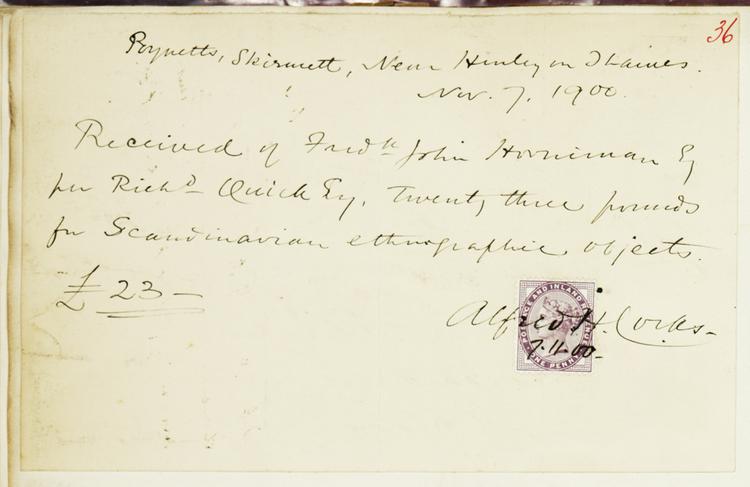 36
Poynetts, Skirmett, Near Henley on Thames.
Nov. 7, 1900.
Received of Fredk John Horniman Esq
per Richd Quick Esq, Twenty three pounds
for Scandinavian ethnographic objects.
£23-
Alfred H. Cocks-
7.11.00-
POSTAGE AND INLAND REVENUE
ONE PENNY